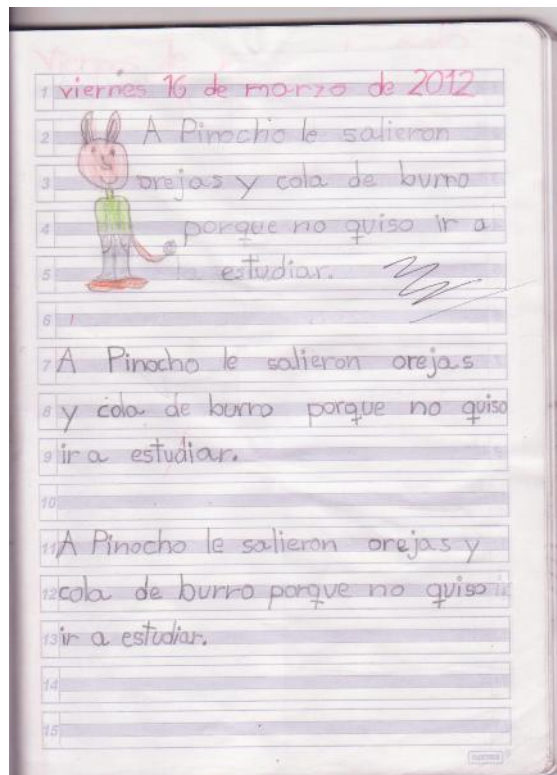 viernes 16 de marzo de 2012
A Pinocho le salieron
orejas y cola de burro
porque no quiso ir a
estudiar.
A Pinocho le salieron orejas
y cola de burro porque no quiso
ir a estudiar.
A Pinocho le salieron orejas y
cola de burro porque no quiso
ir a estudiar.